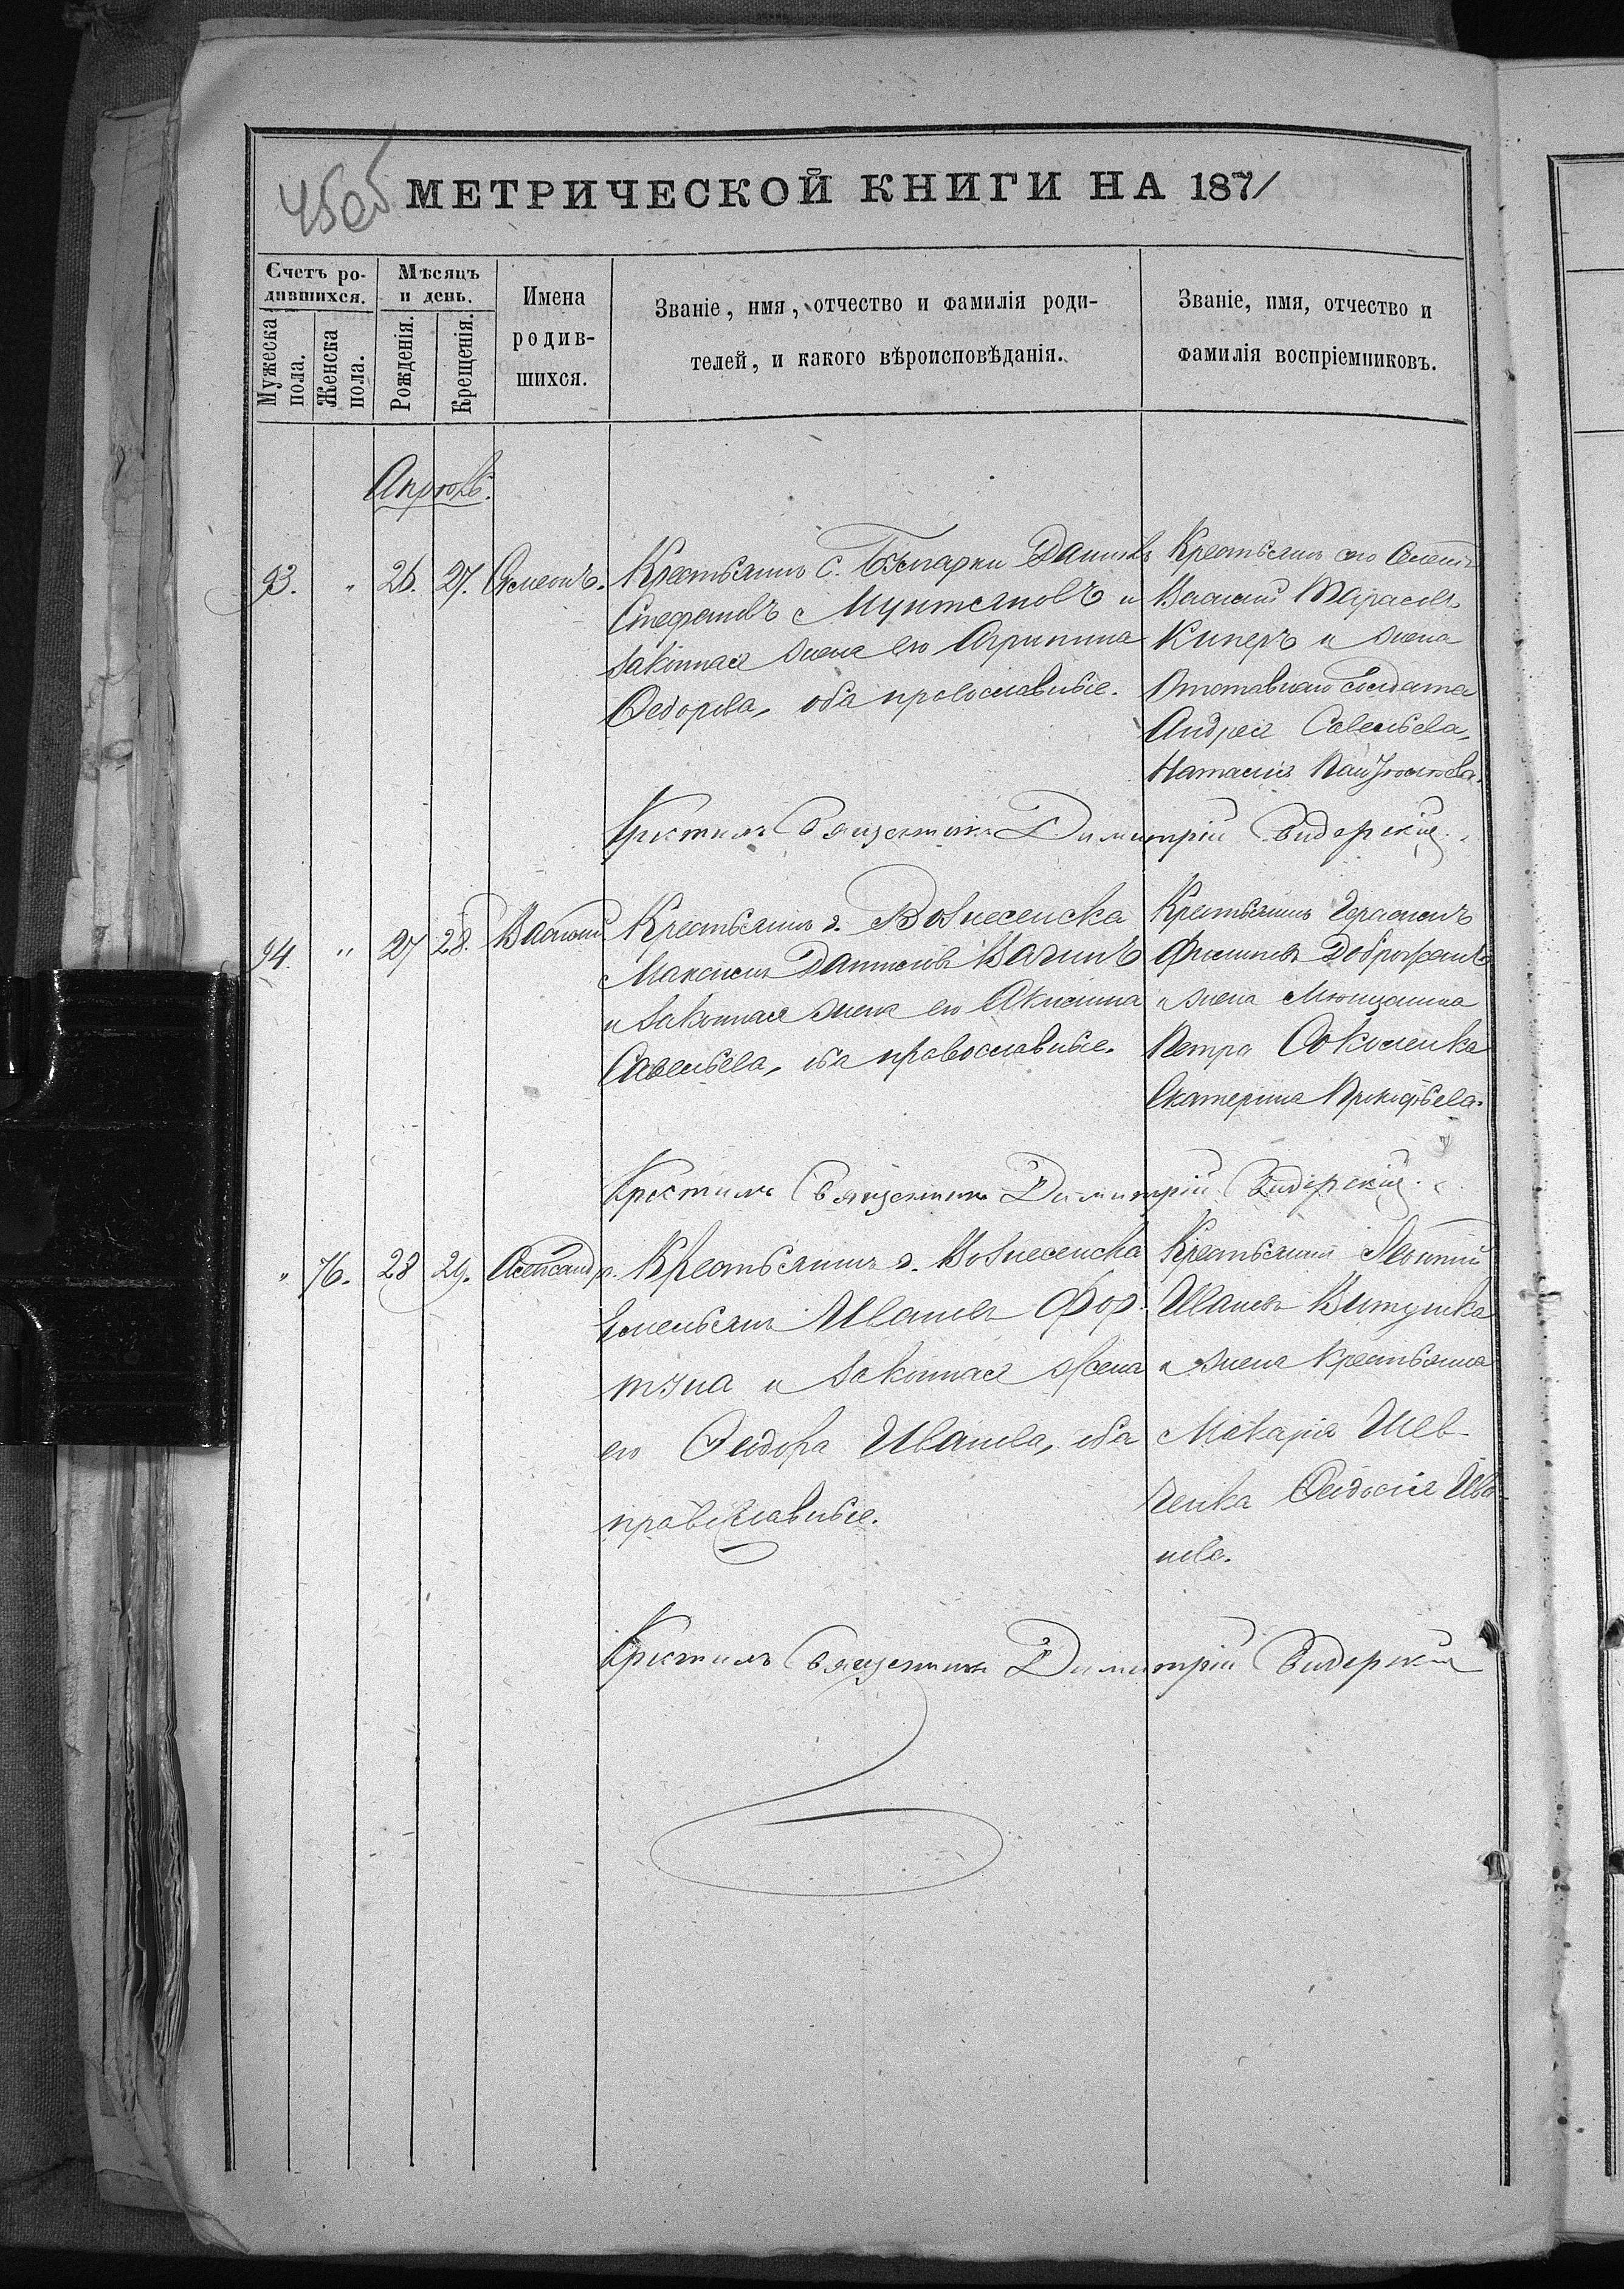 45об
МЕТРИЧЕСКОЙ КНИГИ НА 1871
Счетъ ро-
дившихся.
Мужеска
пола.
Женска
пола.
Мѣсяцъ
и день.
Рожденія.
Крещенія.
Имена
родив-
шихся.
Званіе, имя, отчество и фамилія роди-
телей, и какого вѣроисповѣданія.
Званіе, имя, отчество и
фамилія воспріемниковъ.
Апрѣль.
93. " 26. 27. Симеонъ.
Крестьянинъ с. Бѣлгарки Даниилъ
Стефановъ Мунтяновъ и
законная жена его Агрипина
Ѳедорова, оба православные.
Крестьянинъ
Василій Тарасовъ
Киперъ и жена
Отставнаго Солдата
Андрея Савельева,
Наталія
Крестилъ Священникъ Димитрій Сидерскій.
94. " 27 28. Василій
Крестьянинъ г. Вознесенска
Максимъ Даниловъ Вагинъ
и законная жена его Акилина
Савельева, оба православные.
Крестьянинъ Герасимъ
Филиповъ Доброжанъ
и жена Мѣщанина
Петра Соколенка
Екатерина Прокофьева.
Крестилъ Священникъ Димитрій Сидерскій.
" 76. 28 29. Александр.
Крестьянинъ г. Вознесенска
Емельянъ Ивановъ Фор-
туна и законная жена
его Ѳеодора Иванова, оба
православные.
Крестьянинъ Леонтій
Ивановъ Витушка
и жена крестьянина
Макарія Шев-
ченка Ѳеодосія Ива-
нова.
Крестилъ Священникъ Димитрій Сидерскій